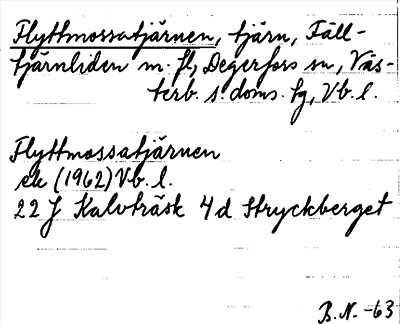 Flyttmossatjärnen, tjärn, Fäll-
tjärnliden m. fl, Degerfors sn, Väs-
terb. s. doms. fg, Vb. l.
Flyttmossatjärnen
ek (1962) Vb. l.
22 J Kalvträsk 4 d Stryckberget
B. N. -63